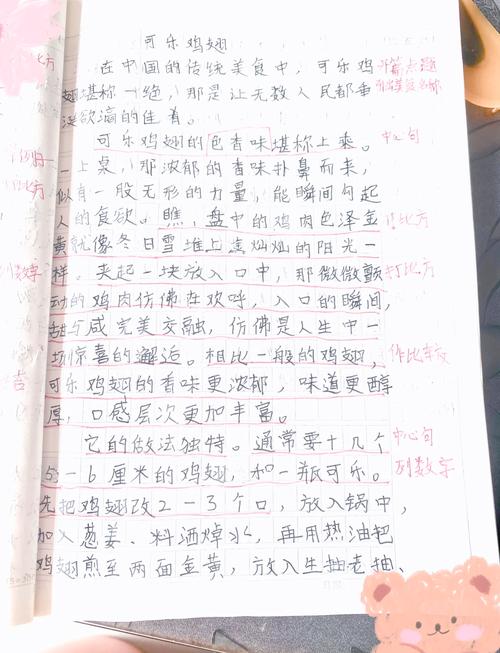 可乐鸡翅
在中国的传统美食中，可乐鸡 开篇点题
翅堪称一绝，那是让无数人民都垂
涎欲滴的佳肴。
可乐鸡翅的色香味堪称上乘。 中心句
一上桌，那浓郁的香味扑鼻而来，
似有一股无形的力量，能瞬间勾起
人的食欲。瞧，盘中的鸡肉色泽金 打比方
黄就像冬日雪堆上金灿灿的阳光一
样。夹起一块放入口中，那微微颤 打比方
动的鸡肉仿佛在欢呼，入口的瞬间，
甜与咸完美交融，仿佛是人生中一
场惊喜的邂逅。相比一般的鸡翅， 作比较
可乐鸡翅的香味更浓郁，味道更醇
厚，口感层次更加丰富。
它的做法独特。通常要十几个 中心句
5-6厘米的鸡翅，和一瓶可乐。 列数字
先把鸡翅改2-3个口，放入锅中，
加入葱姜、料酒焯水，再用热油把
鸡翅煎至两面金黄，放入生抽老抽、